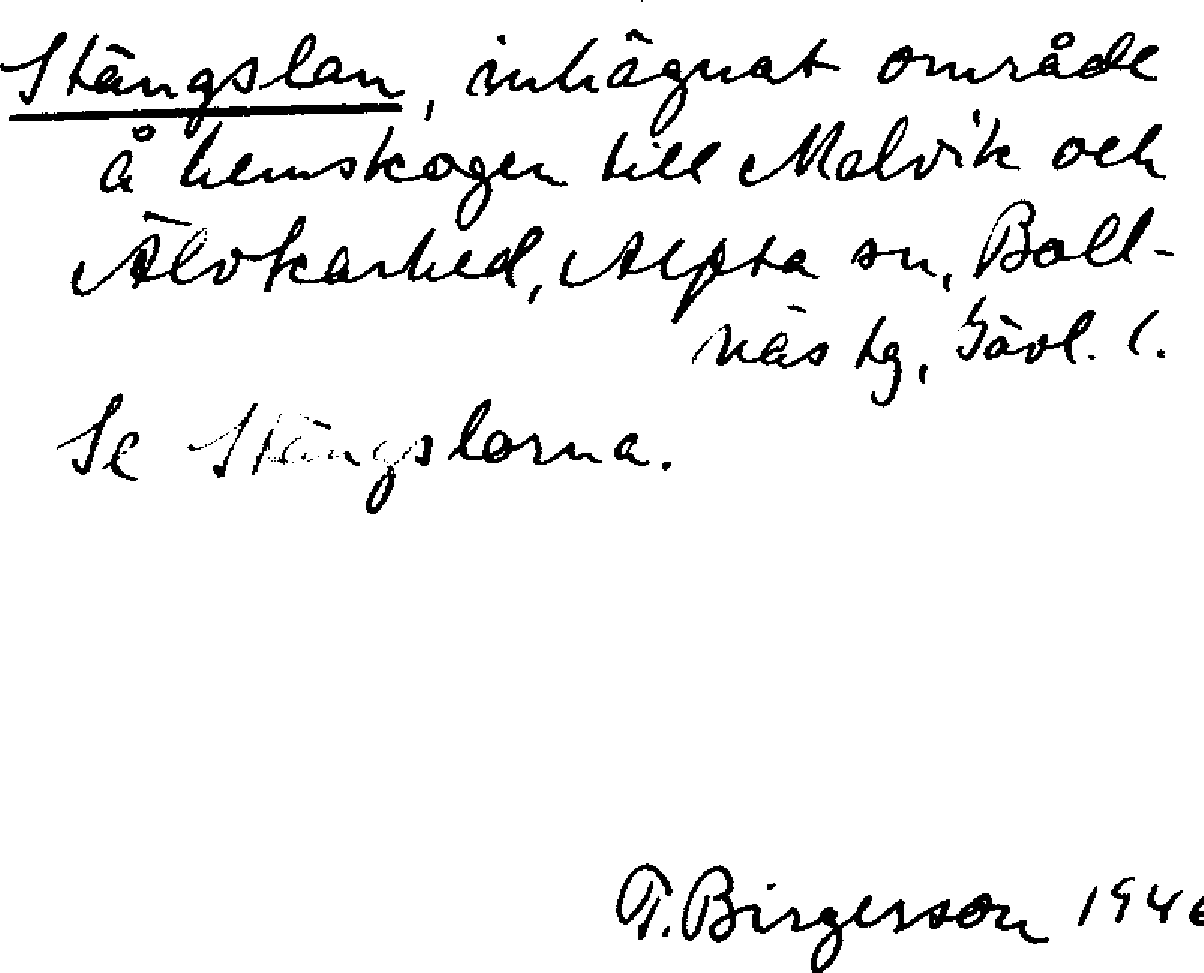 Stängslan, inhägnat område
å hemskogen till Malvik och
Älvkarhed, Alfta sn, Boll-
näs tg, Gävl. l.
Se Stängslorna.
T. Birgerson 1946